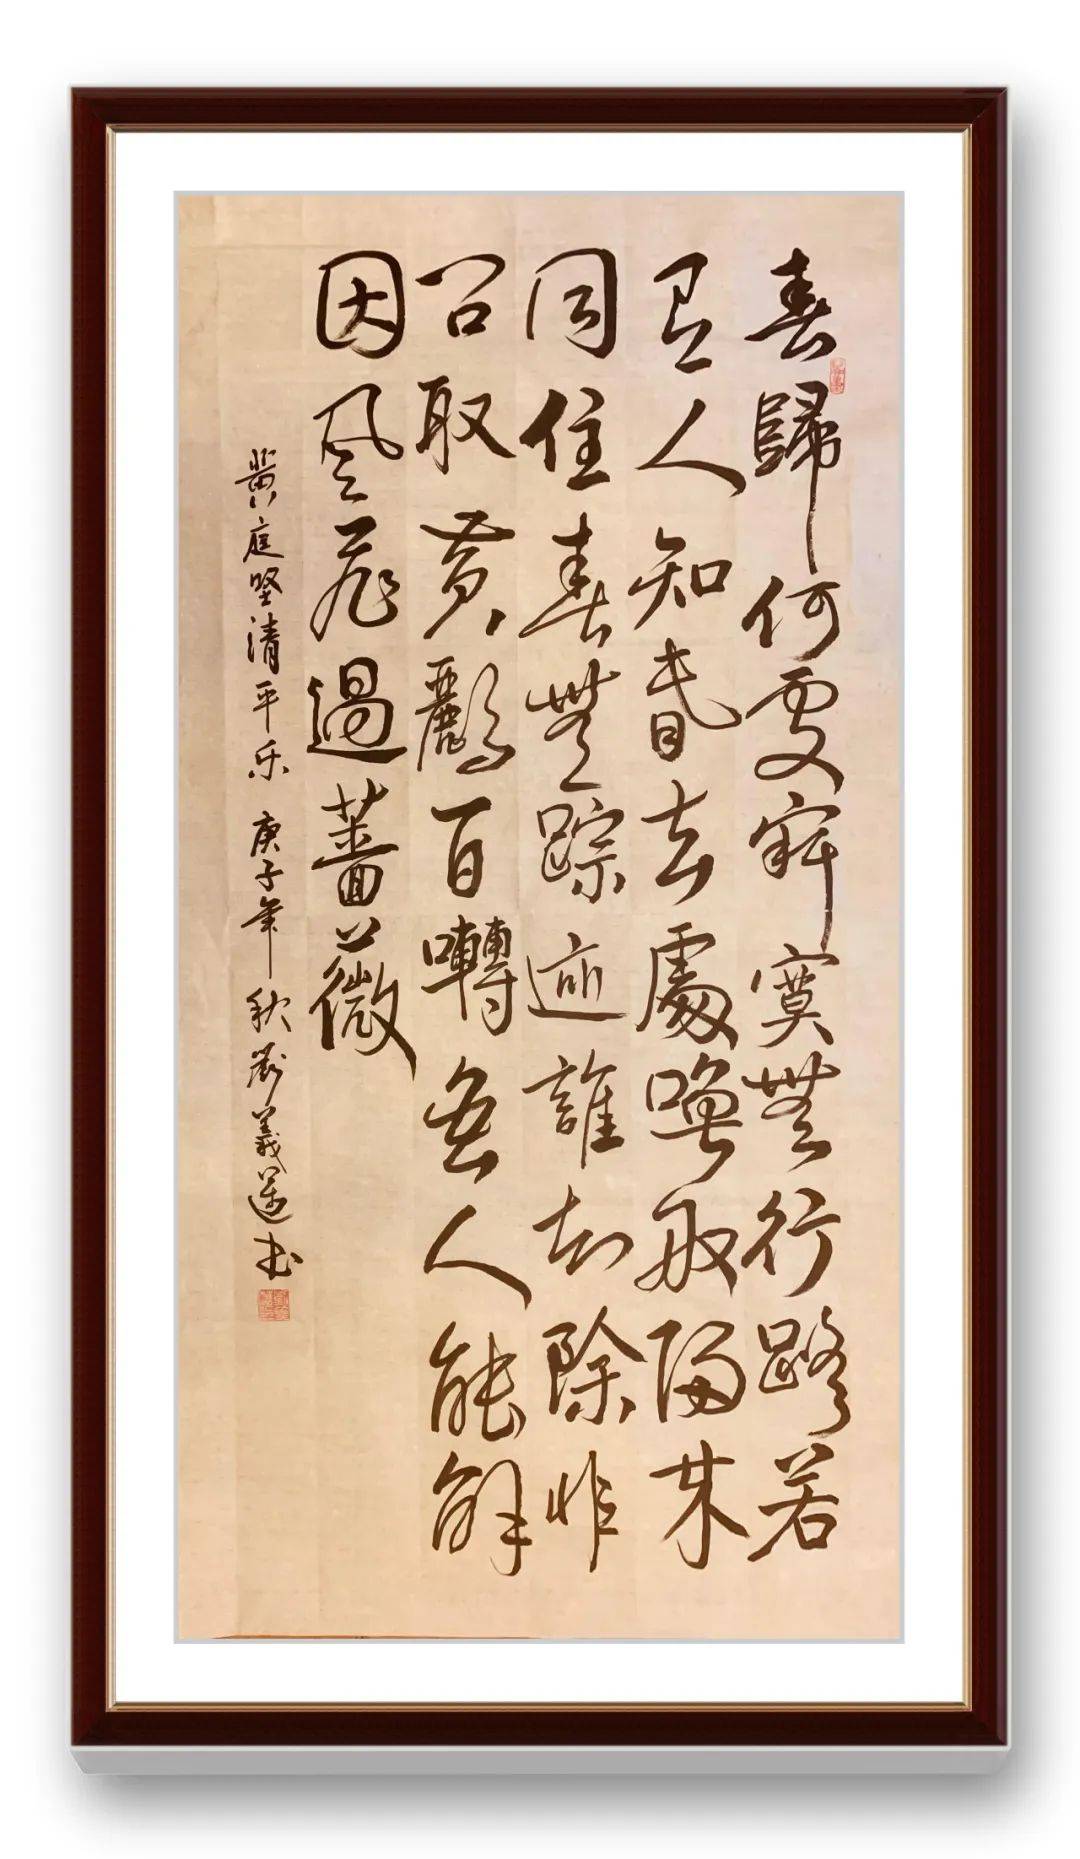 春歸何處寂寞無行路若
有人知春去處喚取歸来
同住春無踪迹誰知除非
问取黄鸝百囀無人能解
因風飛過薔薇
黄庭坚清平乐 庚子年秋劉義书